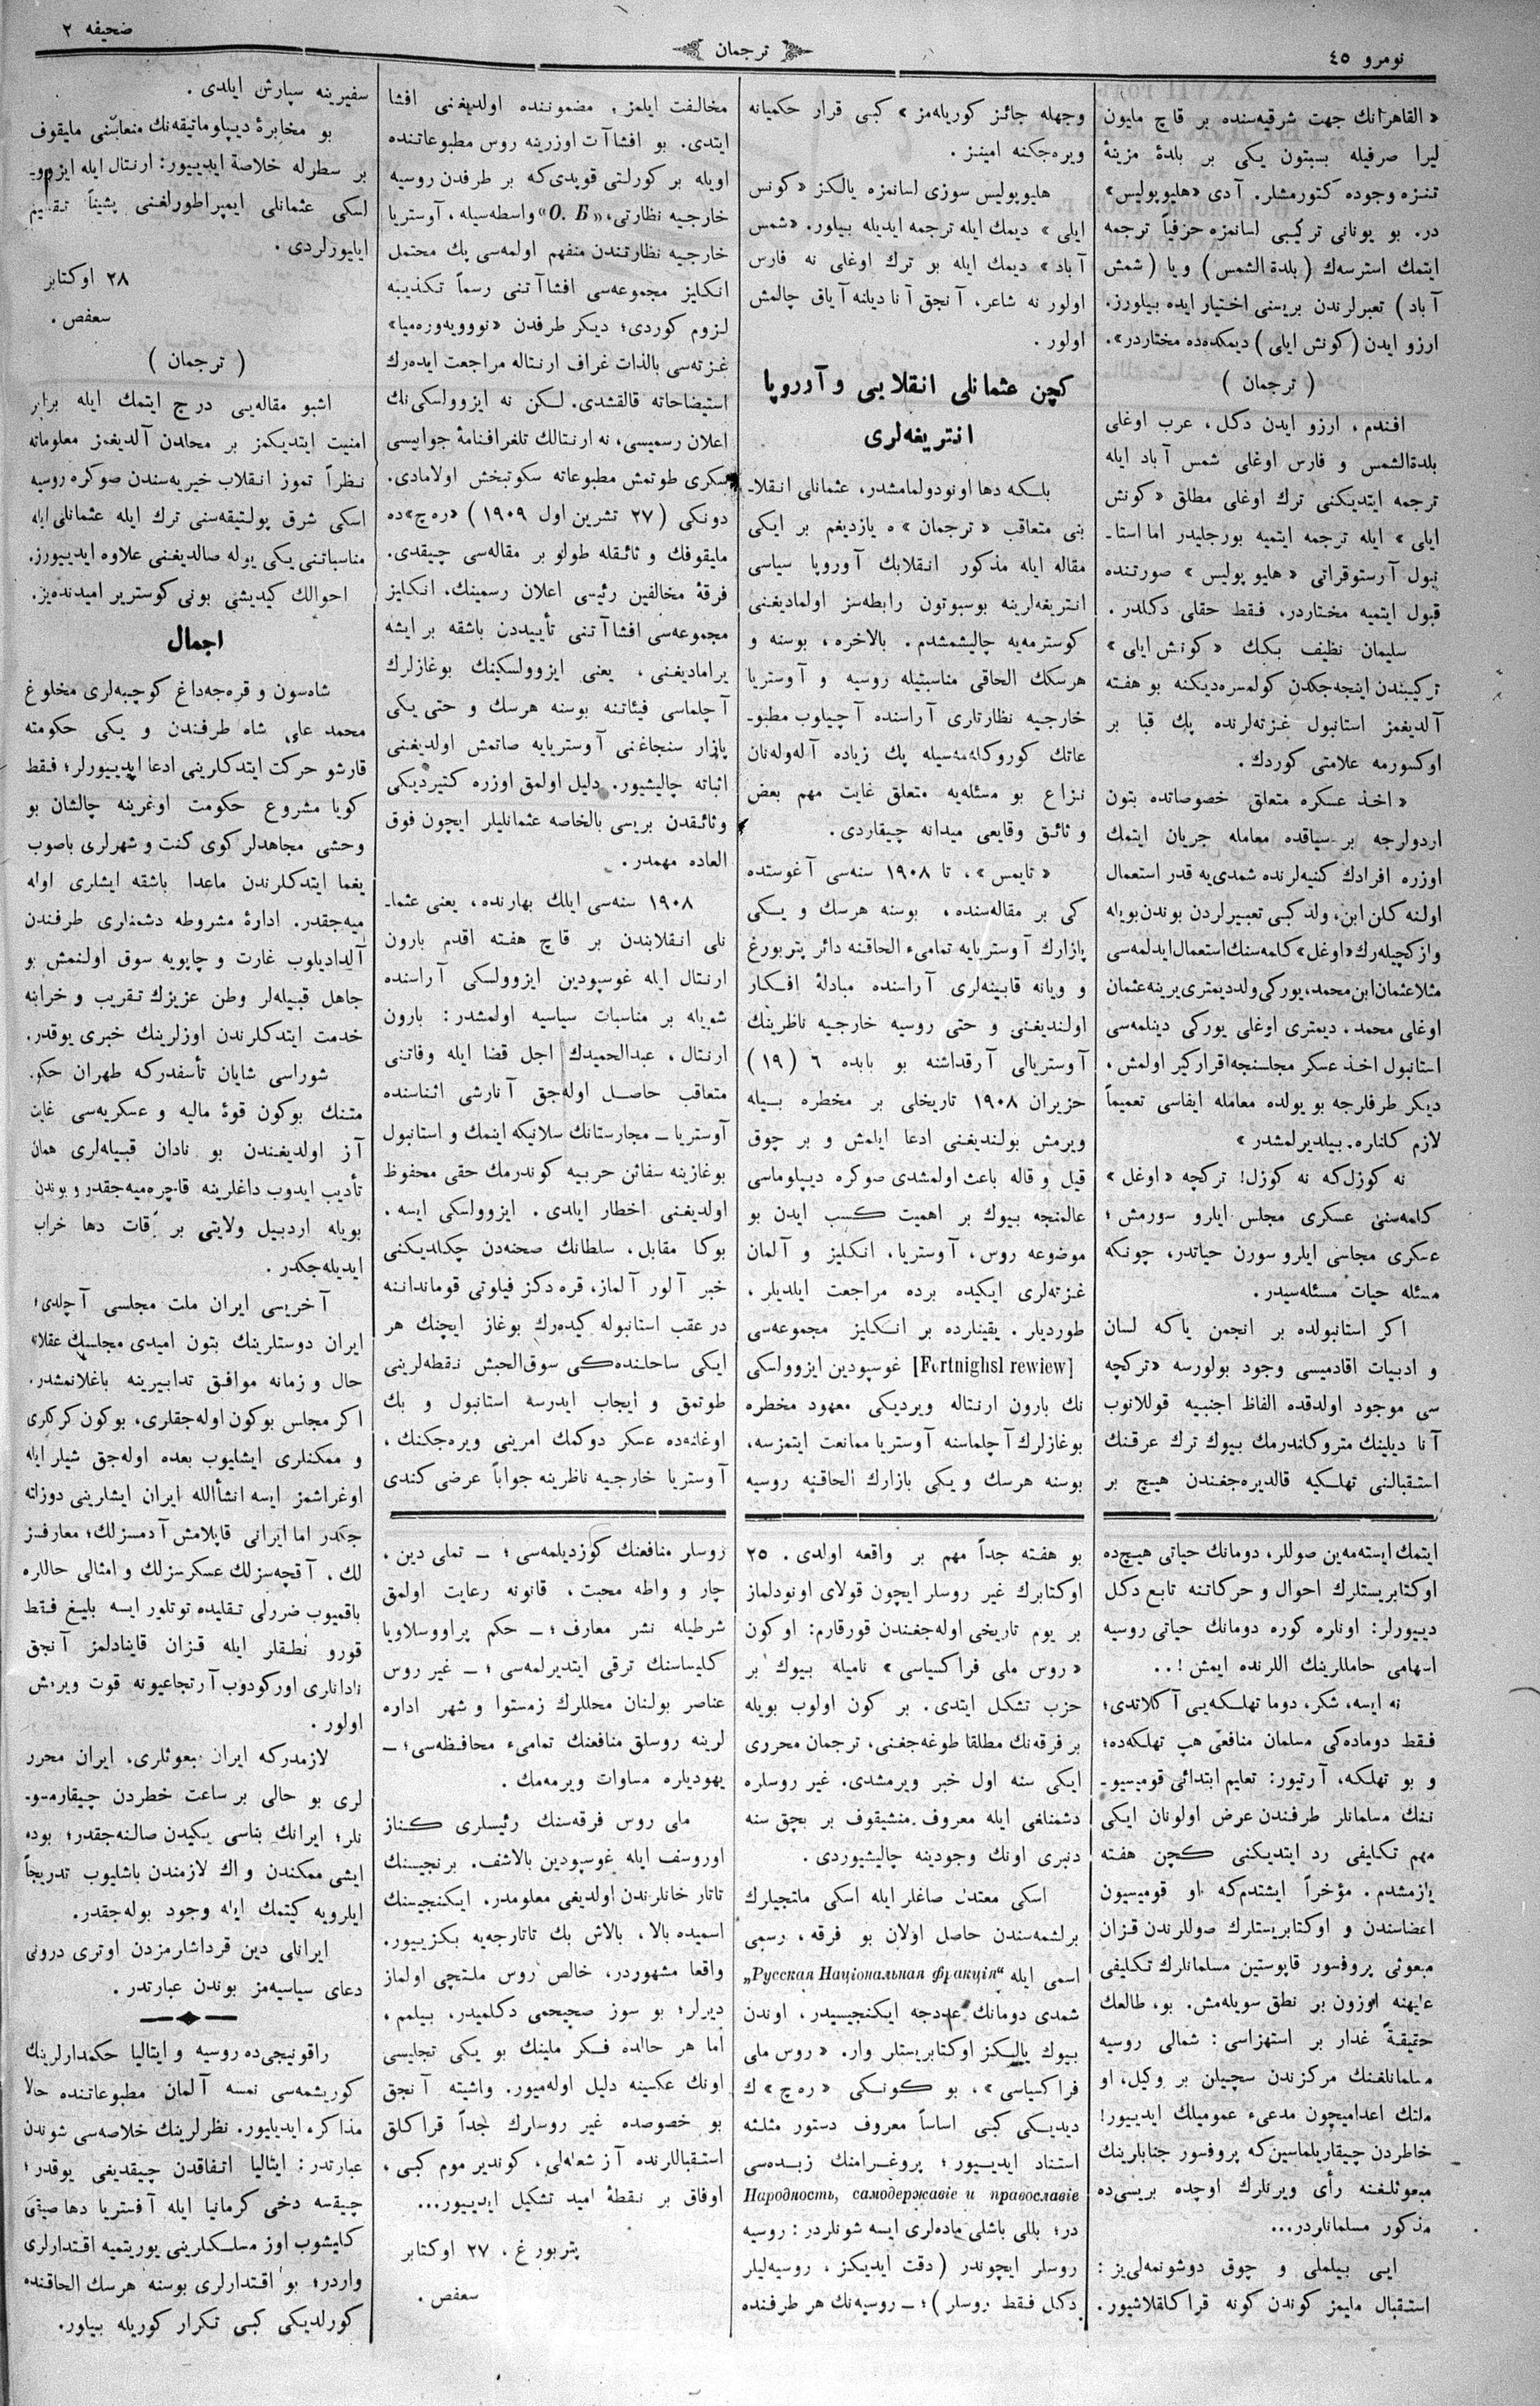 نومرو ٤٥
ترجمان
ضحیفه ٢
« القاهرانك جهت شرقیه‌سنده بر قاچ ملیون
لیرا صرفیله بسبتون یكی بر بلدهٔ مزینهٔ
تنزه وجوده كتورمشلر. آدی «هلیوپولیس»
در. بو یونانی تركیبی لسانمزه حرفیاً ترجمه
ایتمك استرسه‌ك ( بلدة الشمس ) ویا ( شمش
آباد ) تعبیرلرندن بریسنی اختیار ایده بیلورز.
ارزو ایدن ( كونش ایلی ) دیمكده‌ده مختاردر».
( ترجمان )
افندم، ارزو ایدن دكل، عرب اوغلی
بلدةالشمس و فارس اوغلی شمس آباد ایله
ترجمه ایتدیكنی ترك اوغلی مطلق «كونش
ایلی» ایله ترجمه ایتمیه بورجلیدر اما استا-
نبول آرستوقراتی «هلیوپولیس» صورتنده
قبول ایتمیه مختاردر، فقط حقلی دكلدر.
سلیمان نظیف بكك «كونش ایلی»
تركیبندن اینجه‌جكدن كولمسره‌دیكنه بو هفته
آلدیغمز استانبول غزته‌لرنده پك قبا بر
اوكسورمه علامتی كوردك.
« اخذ عسكره متعلق خصوصاتده بتون
اردولرجه بر سیاقده معامله جریان ایتمك
اوزره افرادك كنیه‌لرنده شمدی‌یه قدر استعمال
اولنه كلن ابن، ولد كبی تعبیرلردن بوندن بویله
وازكچیله‌رك «اوغل» كلمه‌سنك استعمال ایدلمه‌سی
مثلا عثمان ابن محمد، یوركی ولد دیمتری یرینه عثمان
اوغلی محمد. دیمتری اوغلی یوركی دینلمه‌سی
استانبول اخذ عسكر مجلسنجه اقراركیر اولمش،
دیكر طرفلرجه بو یولده معامله ایفاسی تعمیماً
لازم كلنلره بیلدیرلمشدر »
نه كوزل‌كه نه كوزل! تركچه «اوغل»
كلمه‌سنی عسكری مجلس ایلرو سورمش؛
عسكری مجلسی ایلرو سورن حیاتدر، چونكه
مسئله حیات مسئله‌سیدر.
اكر استانبولده بر انجمن یاكه لسان
و ادبیات اقادمیسی وجود بولورسه «تركچه
سی موجود اولدقده الفاظ اجنبیه قوللانوب
آنا دیلینك متروكلندرمك بیوك ترك عرقنك
استقبالنی تهلكیه قالدیره‌جغندن هیچ بر
وجهله جائز كوریله‌مز» كبی قرار حكمیانه
ویره‌جكنه امینز.
هلیوپولیس سوزی لسانمزه یالكز «كونس
ایلی» دیمك ایله ترجمه ایدیله بیلور. «شمس
آباد» دیمك ایله بو ترك اوغلی نه فارس
اولور نه شاعر، آنجق آنا دیلنه آیاق چالمش
اولور.
كچن عثمانلی انقلابی و آوروپا
انتریغه‌لری
بلكه دها اونودولمامشدر، عثمانلی انقلا-
بنی متعاقب «ترجمان»ه یازدیغم بر ایكی
مقاله ایله مذكور انقلابك آوروپا سیاسی
انتریغه‌لرینه بوسبوتون رابطه‌سز اولمادیغنی
كوسترمه‌یه چالیشمشدم. بالاخره، بوسنه و
هرسكك الحاقی مناسبتیله روسیه و آوستریا
خارجیه نظارتلری آراسنده آچیلوب مطبو-
عاتك كوروكله‌مه‌سیله پك زیاده آله‌وله‌نان
نزاع بو مسئله‌یه متعلق غایت مهم بعض
وثائق وقایعی میدانه چیقاردی.
«تایمس»، تا ١٩٠٨ سنه‌سی آغوستده
كی بر مقاله‌سنده، بوسنه هرسك و یكی
پازارك آوستریایه تمامیء الحاقنه دائر پتربورغ
و ویانه قابینه‌لری آراسنده مبادلهٔ افكار
اولندیغنی و حتی روسیه خارجیه ناظرینك
آوستریالی آرقداشنه بو بابده ٦ (١٩)
حزیران ١٩٠٨ تاریخلی بر مخطره بیله
ویرمش بولندیغنی ادعا ایلمش و بر چوق
قیل و قاله باعث اولمشدی صوكره دیپلوماسی
عالمنجه بیوك بر اهمیت كسب ایدن بو
موضوعه روس، آوستریا، انكلیز و آلمان
غزته‌لری ایكیده برده مراجعت ایلدیلر،
طوردیلر. یقینلرده بر انكلیز مجموعه‌سی
[Fortnighsl rewiew] غوسپودین ایزوولسكی
نك بارون ارنتاله ویردیكی معهود مخطره
بوغازلرك آچلماسنه آوستریا ممانعت ایتمزسه،
بوسنه هرسك و یكی بازارك الحاقنه روسیه
مخالفت ایلمز، مضموننده اولدیغنی افشا
ایتدی. بو افشاآت اوزرینه روس مطبوعاتنده
اویله بر كورلتی قوپدی‌كه بر طرفدن روسیه
خارجیه نظارتی، «О. Б» واسطه‌سیله، آوستریا
خارجیه نظارتندن منفهم اولمه‌سی پك محتمل
انكلیز مجموعه‌سی افشاآتنی رسماً تكذیبنه
لزوم كوردی؛ دیكر طرفدن «نوویه‌وره‌میا»
غزته‌سی بالذات غراف ارنتاله مراجعت ایده‌رك
استیضاحاته قالقشدی. لكن نه ایزوولسكی‌نك
اعلان رسمیسی، نه ارنتالك تلغرافنامهٔ جوابیسی
سكری طوتمش مطبوعاته سكوتبخش اولامادی.
دونكی (٢٧ تشرین اول ١٩٠٩) «ره‌چ»ده
ملیقوفك وثائقله طولو بر مقاله‌سی چیقدی.
فرقهٔ مخالفین رئیسی اعلان رسمینك، انكلیز
مجموعه‌سی افشاآتنی تأییددن باشقه بر ایشه
یرامادیغنی، یعنی ایزوولسكینك بوغازلرك
آچلماسی فیئاتنه بوسنه هرسك و حتی یكی
پازار سنجاغنی آوستریایه صاتمش اولدیغنی
اثباته چالیشیور. دلیل اولمق اوزره كتیردیكی
وثائقدن بریسی بالخاصه عثمانلیلر ایچون فوق
العاده مهمدر.
١٩٠٨ سنه‌سی ایلك بهارنده، یعنی عثما-
نلی انقلابندن بر قاچ هفته اقدم بارون
ارنتال ایله غوسپودین ایزوولسكی آراسنده
شویله بر مناسبات سیاسیه اولمشدر: بارون
ارنتال، عبدالحمیدك اجل قضا ایله وفاتنی
متعاقب حاصل اوله‌جق آنارشی اثناسنده
آوستریا – مجارستانك سلانیكه اینمك و استانبول
بوغازینه سفائن حربیه كوندرمك حقی محفوظ
اولدیغنی اخطار ایلدی. ایزوولسكی ایسه،
بوكا مقابل، سلطانك صحنه‌دن چكلدیكنی
خبر آلور آلماز، قره دكز فیلوتی قومانداننه
در عقب استانبوله كیده‌رك بوغاز ایچنك هر
ایكی ساحلنده‌كی سوق‌الجیش نقطه‌لرینی
طوتمق و ایجاب ایدرسه استانبول و بك
اوغلنه‌ده عسكر دوكمك امرینی ویره‌جكنك،
آوستریا خارجیه ناظرینه جواباً عرضی كندی
سفیرینه سپارش ایلدی.
بو مخابرهٔ دیپلوماتیقه‌نك منعاسّنی ملیقوف
بر سطرله خلاصة ایدییور: ارنتال ایله ایزوو-
لسكی عثمانلی ایمپراطورلغنی پشیناً تقسیم
ایلیورلردی.
٢٨ اوكتابر
سعفص.
( ترجمان )
اشبو مقاله‌یی درج ایتمك ایله برابر
امنیت ایتدیكمز بر محلدن آلدیغمز معلوماته
نظراً تموز انقلاب خیریه‌سندن صوكره روسیه
اسكی شرق پولتیقه‌سنی ترك ایله عثمانلی ایله
مناسباتنی یكی یوله صالدیغنی علاوه ایدییورز.
احوالك كیدیشی بونی كوستریر امیدنده‌یز.
اجمال
شاه‌سون و قره‌جه‌داغ كوچبه‌لری مخلوغ
محمد علی شاه طرفندن و یكی حكومته
قارشو حركت ایتدكلرینی ادعا ایدییورلر؛ فقط
كویا مشروع حكومت اوغرینه چالشان بو
وحشی مجاهدلر كوی كنت و شهرلری باصوب
یغما ایتدكلرندن ماعدا باشقه ایشلری اوله
میه‌جقدر. ادارهٔ مشروطه دشمنلری طرفندن
آلدادیلوب غارت و چاپویه سوق اولنمش بو
جاهل قبیله‌لر وطن عزیزك تقریب و خرابنه
خدمت ایتدكلرندن اوزلرینك خبری یوقدر.
شوراسی شایان تأسفدركه طهران حكو.
متنك بوكون قوهٔ مالیه و عسكریه‌سی غایت
آز اولدیغندن بو نادان قبیله‌لری همان
تأدیب ایدوب داغلرینه قاچره‌میه‌جقدر و بوندن
بویله اردبیل ولایتی بر قات دها خراب
ایدیله‌جكدر.
آخریسی ایران ملت مجلسی آچلدی؛
ایران دوستلرینك بتون امیدی مجلسك عقلانه
حال و زمانه موافق تدابیرینه باغلانمشدر.
اكر مجلس بوكون اوله‌جقلری، بوكون كركلری
و ممكنلری ایشلیوب بعده اوله‌جق شیلر ایله
اوغراشمز ایسه انشأالله ایران ایشلرینی دوزلته
جكدر اما ایرانی قاپلامش آدمسزلك؛ معارفسز
لك، آقچه‌سزلك عسكرسزلك و امثالی حاللره
باقمیوب ضررلی تقلیده توتلور ایسه بلیغ فقط
قورو نطقلر ایله قزان قاینادلمز آنجق
نادانلری اوركودوب آرتجاعیونه قوت ویرمش
اولور.
لازمدركه ایران مبعوثلری، ایران محرر
لری بو حالی بر ساعت خطردن چیقارمسو-
نلر؛ ایرانك بناسی یكیدن صالنه‌جقدر؛ بوده
ایشی ممكندن و اك لازمندن باشلیوب تدریجاً
ایلرویه كیتمك ایله وجود بوله‌جقدر.
ایرانلی دین قرداشلرمزدن اوتری درونی
دعای سیاسیه‌مز بوندن عبارتدر.
راقونیجی‌ده روسیه و ایتالیا حكمدارلرینك
كوریشمه‌سی نمسه آلمان مطبوعاتنده حالا
مذاكره ایدیلیور. نظرلرینك خلاصه‌سی شوندن
عبارتدر: ایتالیا اتفاقدن چیقدیغی یوقدر؛
چیقسه دخی كرمانیا ایله آفستریا دها صیقی
كلیشوب اوز مسلكلرینی یوریتمیه اقتدارلری
واردر؛ بو اقتدارلری بوسنه هرسك الحاقنده
كورلدیكی كبی تكرار كوریله بیلور.
ایتمك ایسته‌مه‌ین صوللر، دومانك حیاتی هیچ‌ده
اوكتابریستلرك احوال و حركاتنه تابع دكل
دییورلر: اونلره كوره دومانك حیاتی روسیه
اسهامی حامللرینك اللرنده ایمش!..
نه ایسه، شكر، دوما تهلكه‌یی آكلاتدی؛
فقط دوماده‌كی مسلمان منافعی هپ تهلكه‌ده؛
و بو تهلكه، آرتیور: تعلیم ابتدائی قومیسیو-
ننك مسلمانلر طرفندن عرض اولونان ایكی
مهم تكلیفی رد ایتدیكنی كچن هفته
یازمشدم. مؤخراً ایشتدم‌كه او قومیسیون
اعضاسندن و اوكتابریستلرك صوللرندن قزان
مبعوثی پروفسور قاپوستین مسلمانلرك تكلیفی
علیهنه اوزون بر نطق سویله‌مش. بو، طالعك
حقیقةً غدار بر استهزاسی: شمالی روسیه
مسلمانلغنك مركزندن سچیلن بر وكیل، او
ملتك اعدامیچون مدعیء عمومیلك ایدییور!
خاطردن چیقاریلماسین‌كه پروفسور جنابلرینك
مبعوثلغنه رأی ویرنلرك اوچده بریسی‌ده
مذكور مسلمانلردر...
ایی بیلملی و چوق دوشونمه‌لی‌یز:
استقبال ملیمز كوندن كونه قراكلقلاشیور.
بو هفته جداً مهم بر واقعه اولدی. ٢٥
اوكتابرك غیر روسلر ایچون قولای اونودلماز
بر یوم تاریخی اوله‌جغندن قورقارم: او كون
«روس ملی فراكسیاسی» نامیله بیوك بر
حزب تشكل ایتدی. بر كون اولوب بویله
بر فرقه‌نك مطلقا طوغه‌جغنی، ترجمان محرری
ایكی سنه اول خبر ویرمشدی. غیر روسلره
دشمنلغی ایله معروف منشیقوف بر بچق سنه
دنبری اونك وجودینه چالیشیوردی.
اسكی معتدل صاغلر ایله اسكی ملتچیلرك
برلشمه‌سندن حاصل اولان بو فرقه، رسمی
اسمی ایله „Русская Національная фракція“
شمدی دومانك عددجه ایكنجیسیدر، اوندن
بیوك یالكز اوكتابریستلر وار. «روس ملی
فراكسیاسی»، بو كونكی «ره‌چ»ك
دیدیكی كبی اساساً معروف دستور مثلثه
استناد ایدییور؛ پروغرامنك زبده‌سی
Народность, самодержавіе и православіе
در؛ بللی باشلی ماده‌لری ایسه شونلردر: روسیه
روسلر ایچوندر (دقت ایدیكز، روسیه‌لیلر
دكل فقط روسلر)؛ – روسیه‌نك هر طرفنده
روسلر منافعنك كوزدیلمه‌سی؛ – تملی دین،
چار و واطه محبت، قانونه رعایت اولمق
شرطیله نشر معارف؛ – حكم پراووسلاویا
كلیساسنك ترقی ایتدیرلمه‌سی؛ – غیر روس
عناصر بولنان محللرك زمستوا و شهر اداره
لرینه روسلق منافعنك تمامیء محافظه‌سی؛ –
یهودیلره مساوات ویرمه‌مك.
ملی روس فرقه‌سنك رئیسلری كناز
اوروسف ایله غوسپودین بالاشف. برنجیسنك
تاتار خانلرندن اولدیغی معلومدر. ایكنجیسنك
اسمیده بالا، بالاش بك تاتارجه‌یه بكزییور.
واقعا مشهوردر، خالص روس ملتچی اولماز
دیرلر؛ بو سوز صحیحمی دكلمیدر، بیلمم،
اما هر حالده فكر ملینك بو یكی تجلیسی
اونك عكسینه دلیل اوله‌میور. واشیته آنجق
بو خصوصده غیر روسلرك جداً قراكلق
استقباللرنده آز شعله‌لی، كوندیر موم كبی،
اوفاق بر نقطهٔ امید تشكیل ایدییور...
پتربورغ، ٢٧ اوكتابر
سعفص.